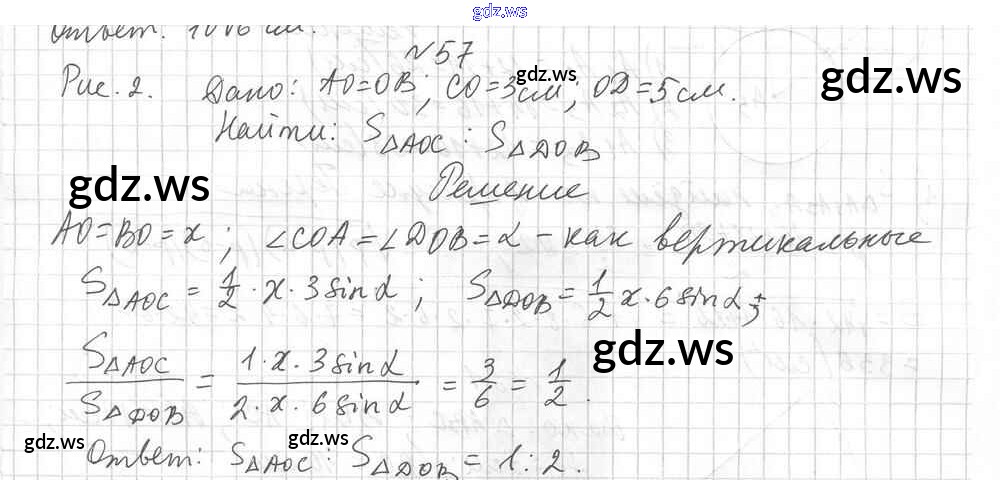 gdz.ws
Ответ: 10√6 см.
№57
Рис. 2. Дано: AO=OB; CO=3см; OD=5см.
gdz.ws
gdz.ws
Найти: S△AOC : S△DOB
gdz.ws
Решение
AO=BO=x; ∠COA=∠DOB=α - как вертикальные
S△AOC = 1/2 · x · 3 sin α; S△DOB = 1/2 x · 6 sin α;
gdz.ws
S△AOC / S△DOB = 1·x·3 sin α / 2·x·6 sin α = 3/6 = 1/2.
gdz.ws
gdz.ws
Ответ: S△AOC : S△DOB = 1:2.